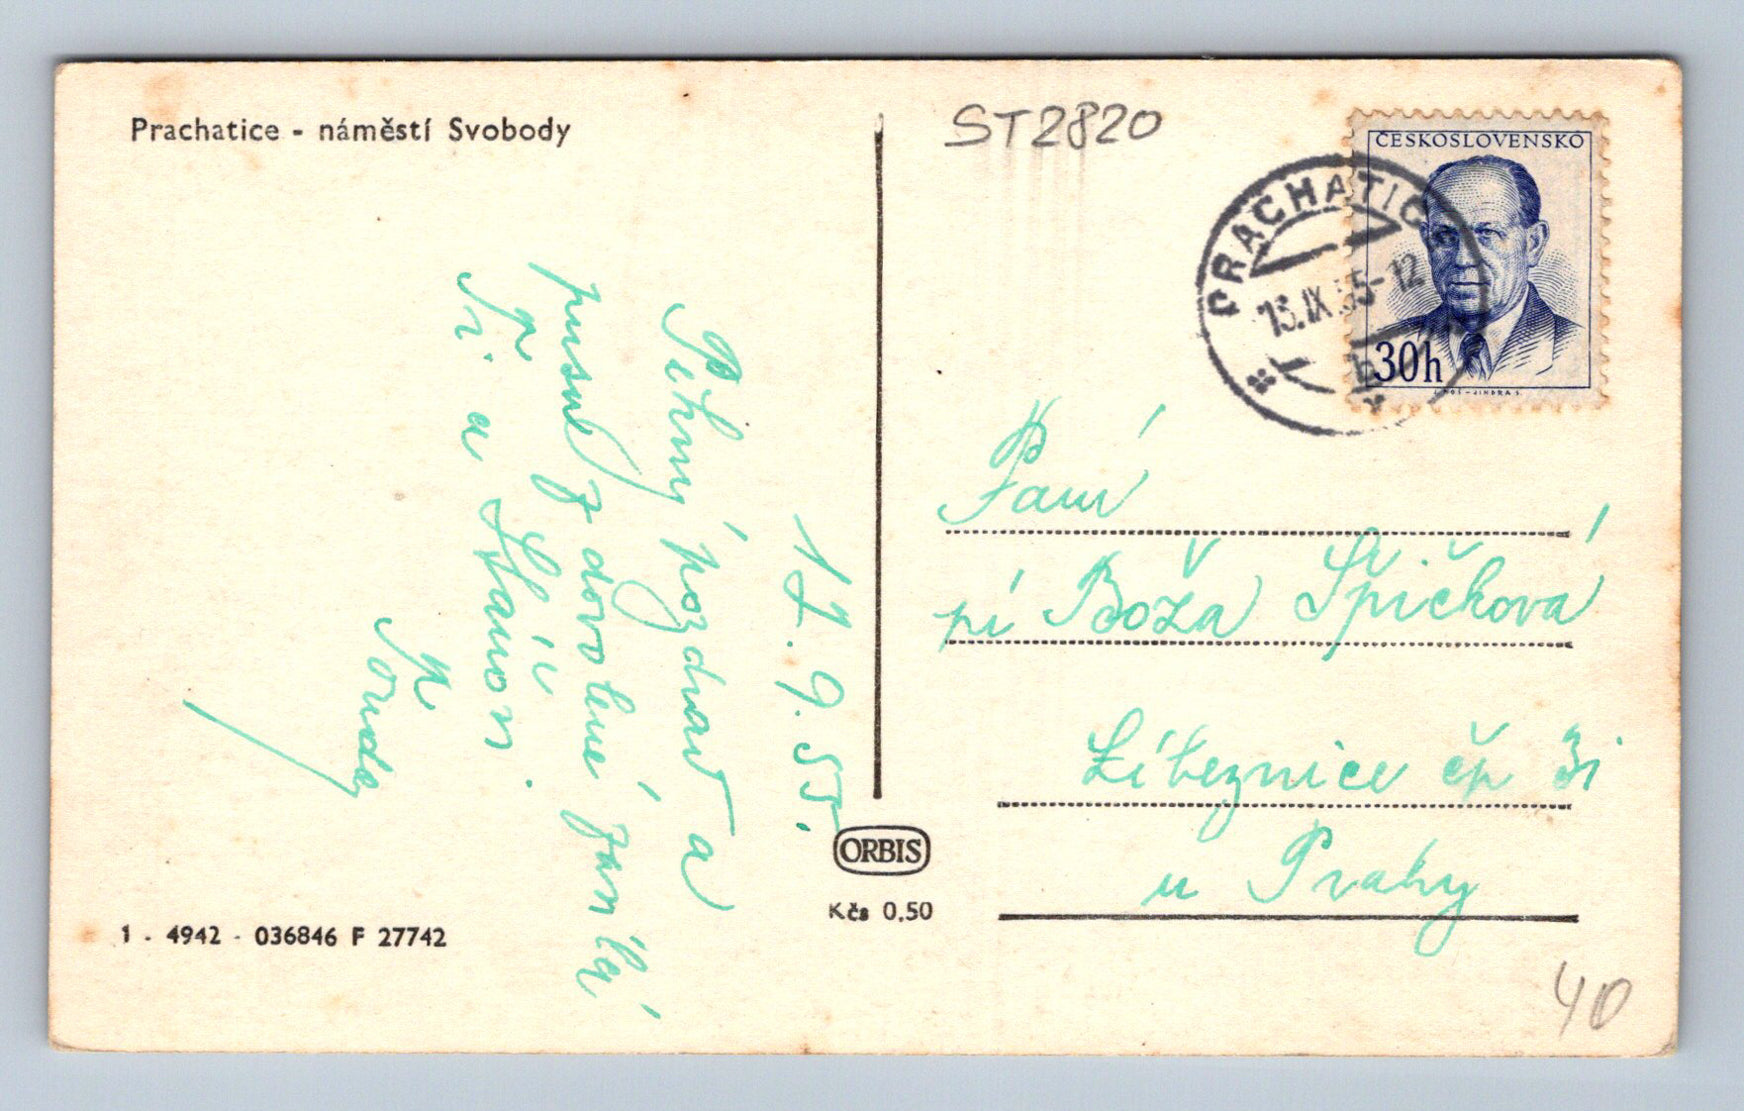 Prachatice - náměstí Svobody
ST2820
ČESKOSLOVENSKO
PRACHATICE
13.IX.55-12
30h
12. 9. 55.
Pěkný pozdrav a
z dovolené
Ti a
Paní
pí Boža Špičková
Líbeznice čp 31
u Prahy
ORBIS
Kčs 0,50
1 - 4942 - 036846 F 27742
40